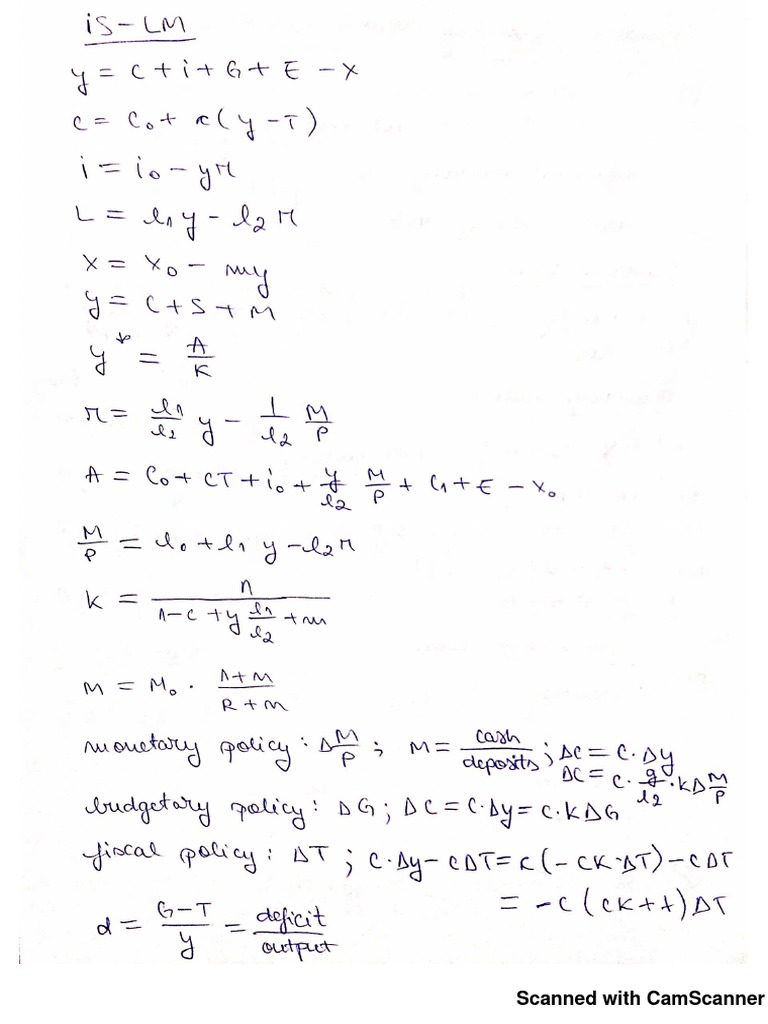 is-LM
y = c + i + G + E - x
c = c₀ + c(y-T)
i = i₀ - yr
L = l₁y - l₂r
x = x₀ - my
y = c + s + M
y* = A/K
r = l₁/l₂ y - 1/l₂ M/P
A = c₀ + cT + i₀ + y/l₂ M/P + G + E - x₀
M/P = l₀ + l₁ y - l₂r
k = 1/(1-c + y l₁/l₂ + m)
m = M₀ · (1+m)/(R+m)
monetary policy: Δ M/P ; m = cash/deposits ; Δc = c·Δy
Δc = c· g/l₂ ·kΔ M/P
budgetary policy: ΔG ; Δc = c·Δy = c·kΔG
fiscal policy: ΔT ; c·Δy - cΔT = c(-ck·ΔT) - cΔT
= -c(ck+1)ΔT
d = G-T/y = deficit/output
Scanned with CamScanner